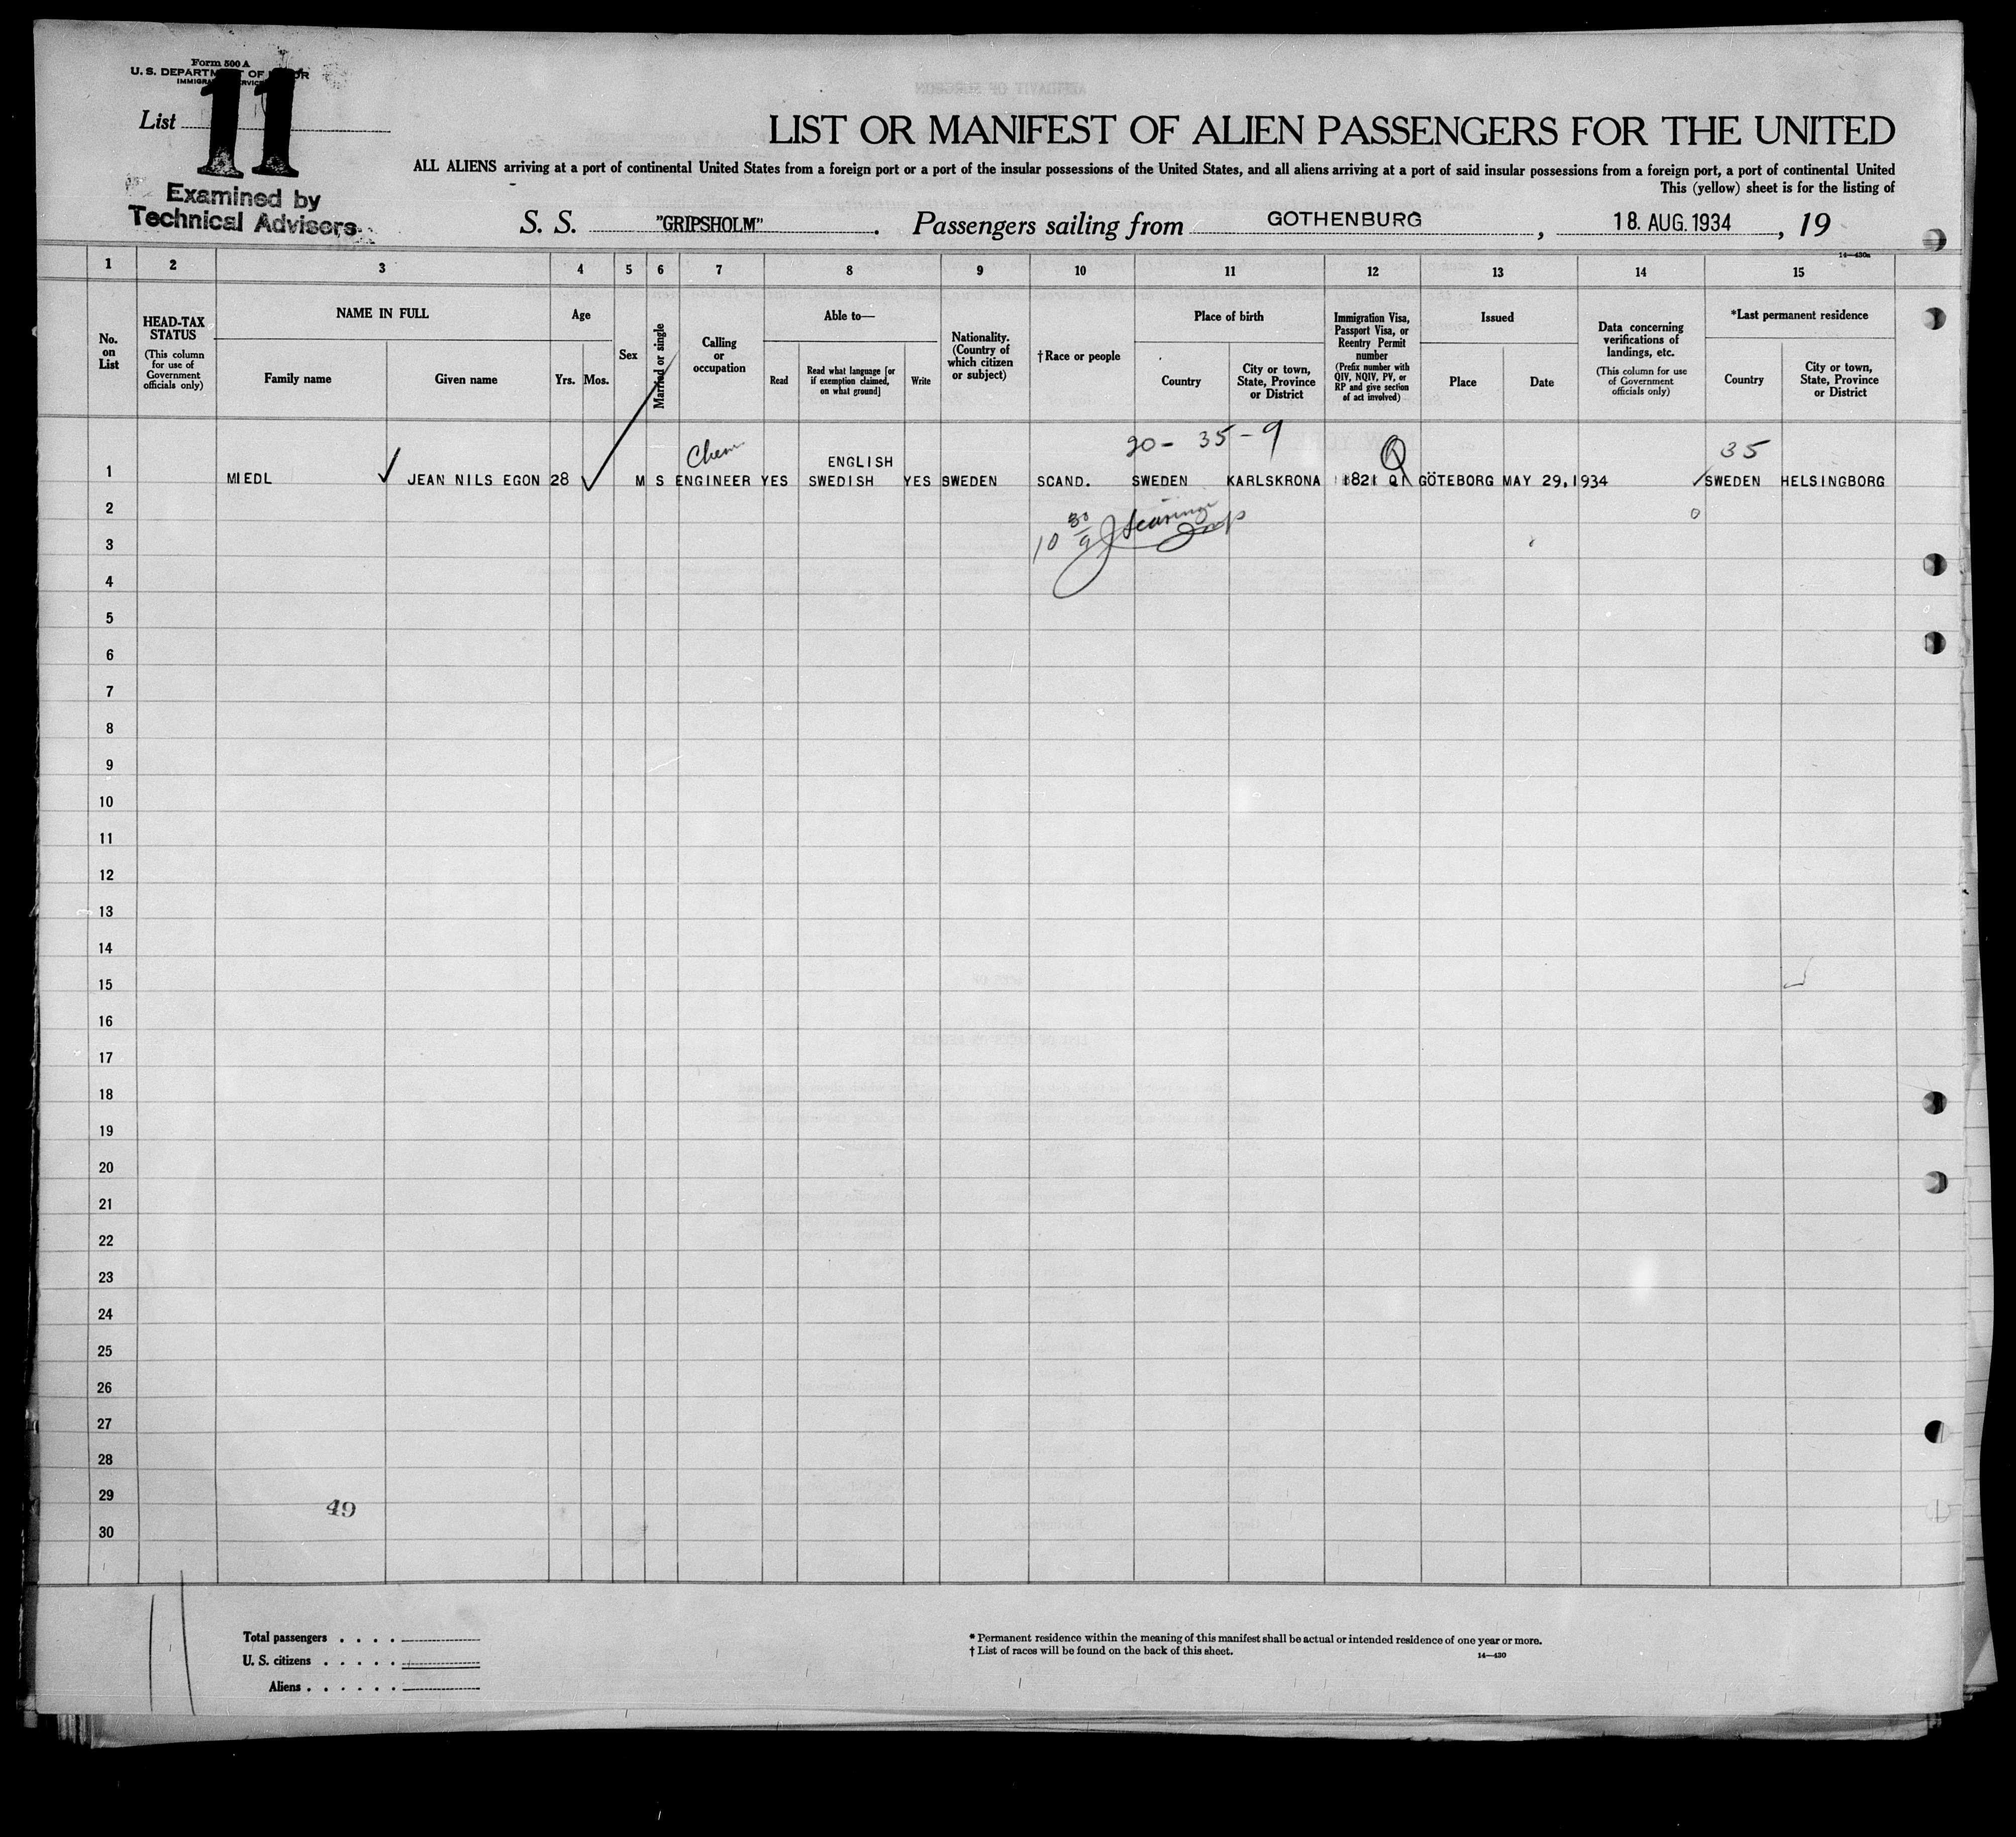 Form 500 A
U. S. DEPARTMENT OF LABOR
IMMIGRATION SERVICE
List 11
LIST OR MANIFEST OF ALIEN PASSENGERS FOR THE UNITED
ALL ALIENS arriving at a port of continental United States from a foreign port or a port of the insular possessions of the United States, and all aliens arriving at a port of said insular possessions from a foreign port, a port of continental United
This (yellow) sheet is for the listing of
Examined by
Technical Advisers
S. S. "GRIPSHOLM". Passengers sailing from GOTHENBURG, 18. AUG. 1934, 19
14—430a
1 2 3 4 5 6 7 8 9 10 11 12 13 14 15
No. on List
HEAD-TAX STATUS
(This column for use of Government officials only)
NAME IN FULL
Family name
Given name
Age
Yrs. Mos.
Sex
Married or single
Calling or occupation
Able to—
Read
Read what language [or if exemption claimed, on what ground]
Write
Nationality. (Country of which citizen or subject)
† Race or people
Place of birth
Country
City or town, State, Province or District
Immigration Visa, Passport Visa, or Reentry Permit number
(Prefix number with QIV, NQIV, PV, or RP and give section of act involved)
Issued
Place
Date
Data concerning verifications of landings, etc.
(This column for use of Government officials only)
*Last permanent residence
Country
City or town, State, Province or District
20 - 35 - 9
Chem
ENGLISH
Q
35
1 MIEDL JEAN NILS EGON 28 M S ENGINEER YES SWEDISH YES SWEDEN SCAND. SWEDEN KARLSKRONA 1821 QI GÖTEBORG MAY 29,1934 SWEDEN HELSINGBORG
2
3
4
5
6
7
8
9
10
11
12
13
14
15
16
17
18
19
20
21
22
23
24
25
26
27
28
29
49
30
Total passengers . . . .
U. S. citizens . . . . .
Aliens . . . . . .
* Permanent residence within the meaning of this manifest shall be actual or intended residence of one year or more.
† List of races will be found on the back of this sheet.
14—430